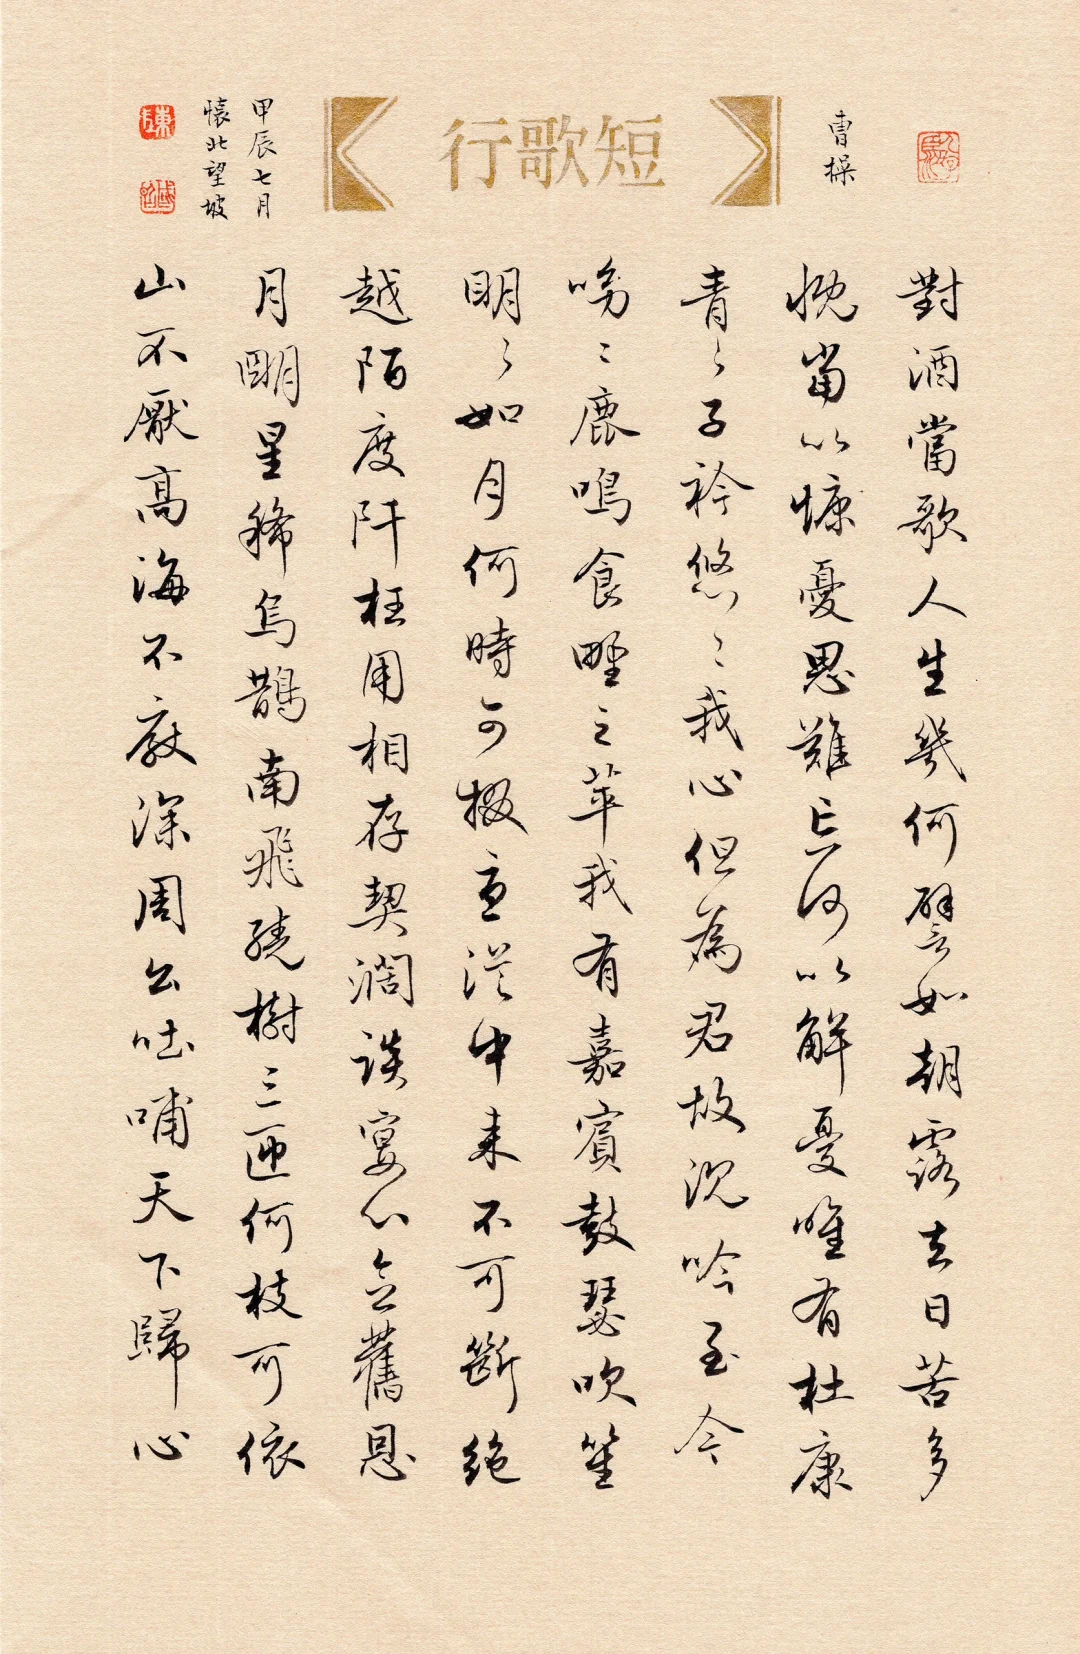 短歌行
曹操
對酒當歌人生幾何譬如朝露去日苦多
慨當以慷憂思難忘何以解憂唯有杜康
青々子衿悠〻我心但為君故沉吟至今
呦〻鹿鳴食野之苹我有嘉賓鼓瑟吹笙
明々如月何時可掇憂從中來不可斷絕
越陌度阡枉用相存契闊談宴心念舊恩
月明星稀烏鵲南飛繞樹三匝何枝可依
山不厭高海不厭深周公吐哺天下歸心
甲辰七月
懷北望坡